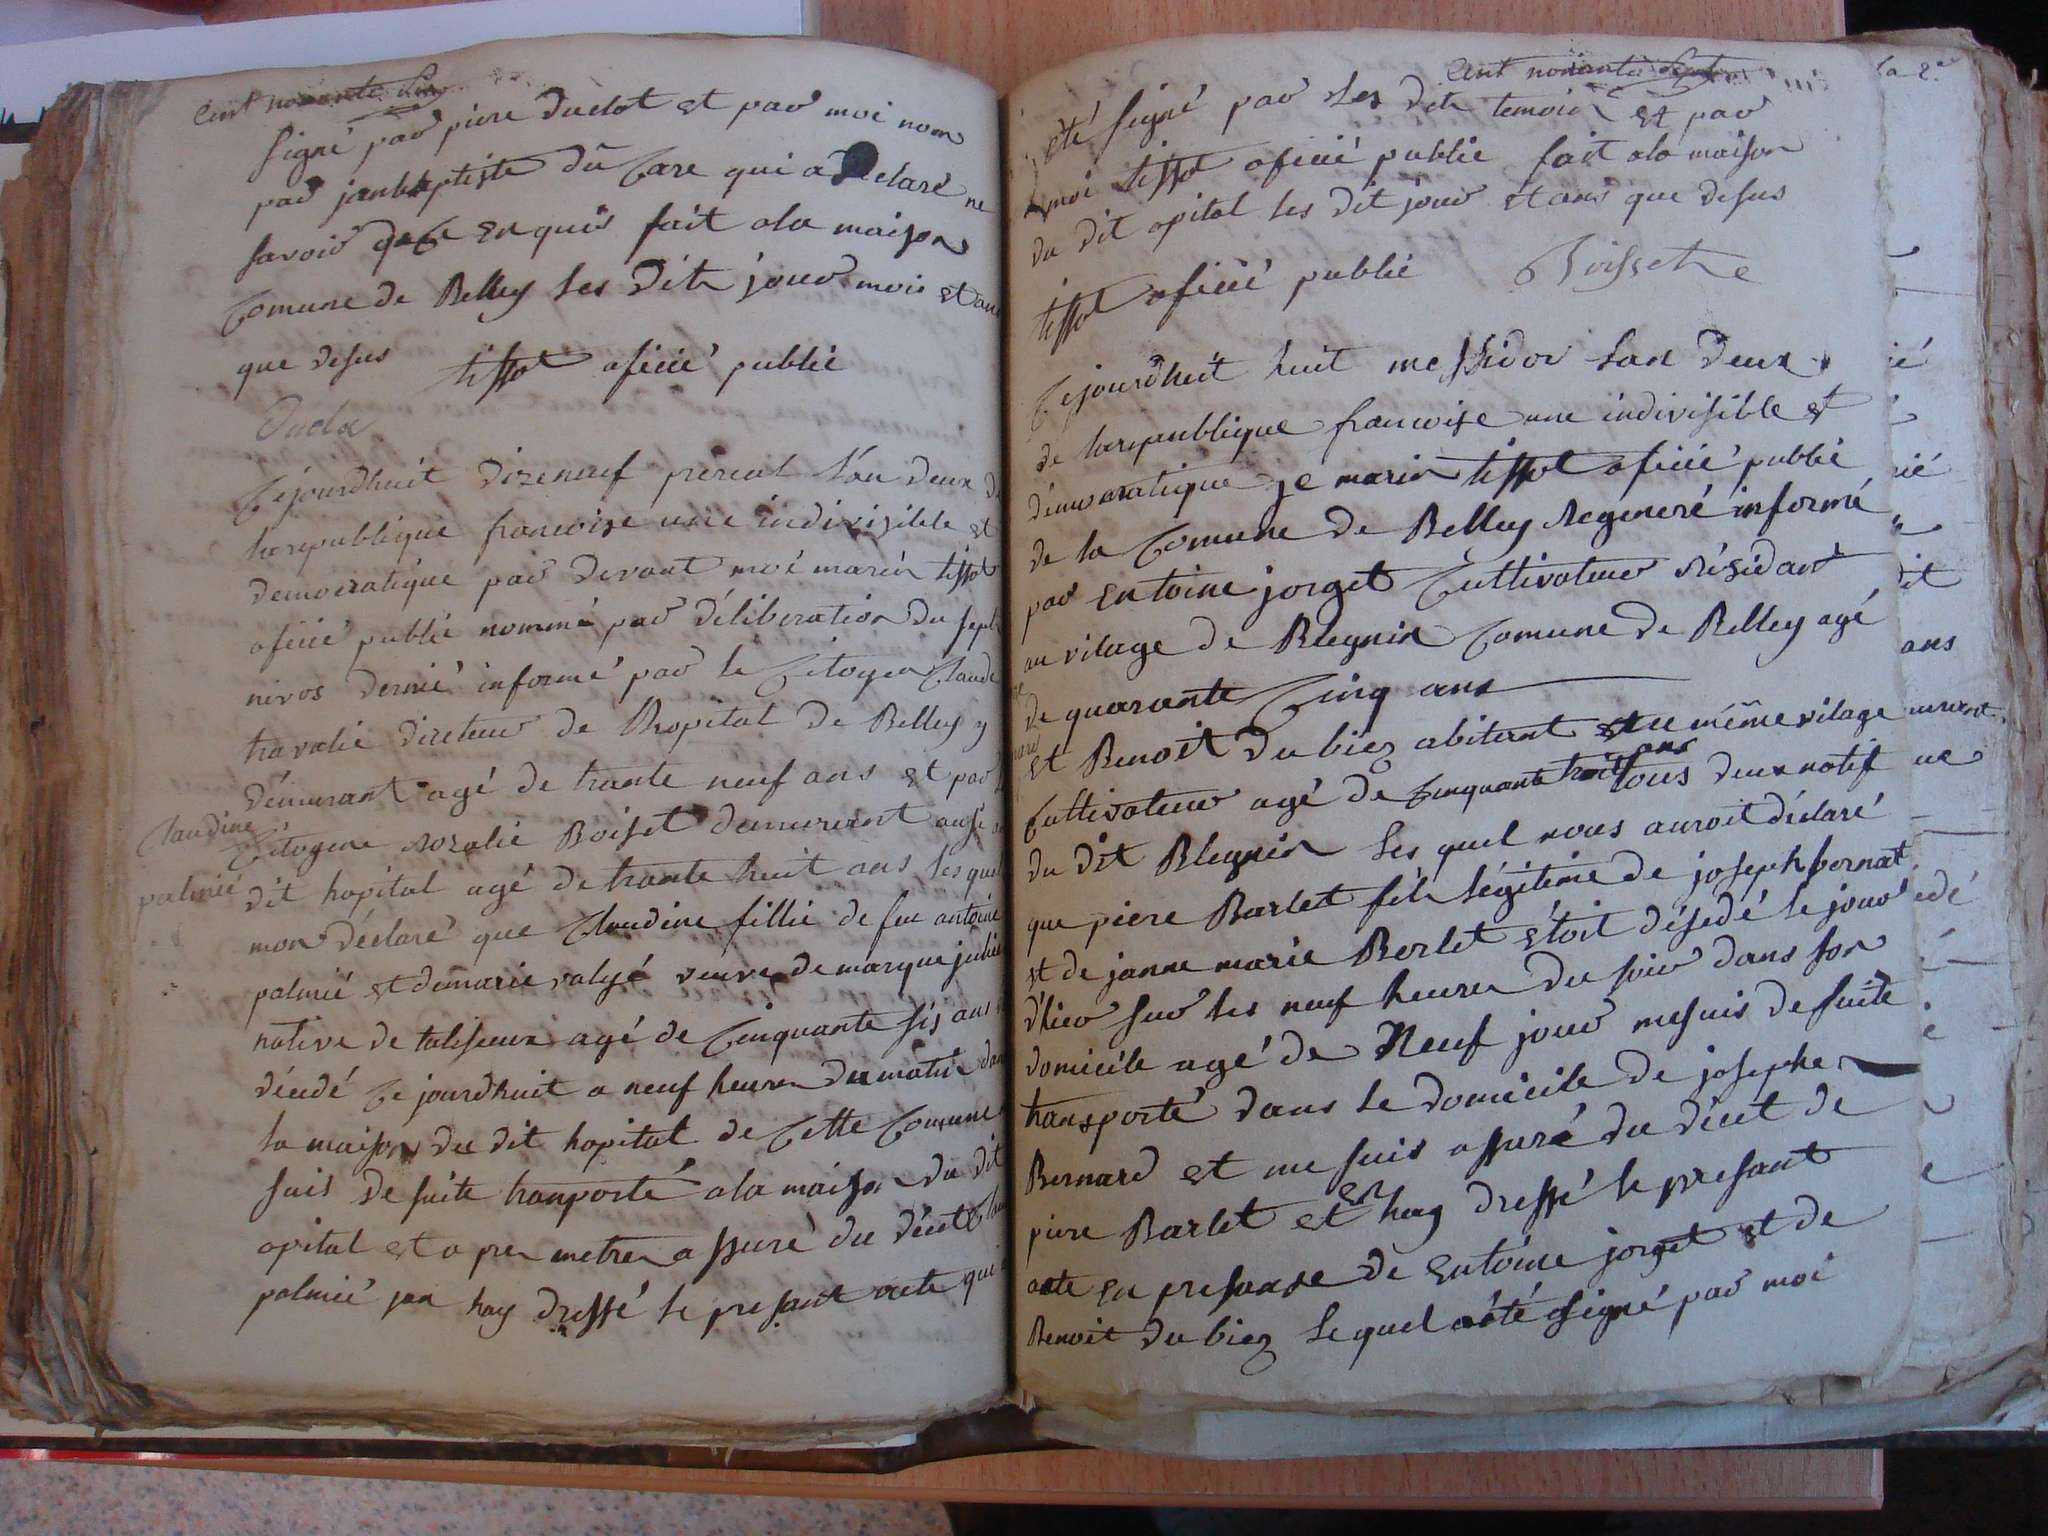 Cent nonante
signé par piere Duclot et par moi nom
par janbaptiste du Care qui a declaré ne
savoir de ce enquis fait ala maison
Comune de Belley les dits jour mois et an
que desus tissot oficié publié
Duclot
Cejourdhuit dizeneuf prerial l'an deux de
larepublique francoise une indivisible et
democratique par devant moi marin tissot
oficié publié nommé par déliberation du sept
nivos dernié informé par le Citoyen Claude
travalié direteur de lhopital de Belley y
démurant agé de trante neuf ans et par
Citogene rozalie Boiset demurant ausi
dit hopital agé de trante huit ans les quel
Claudine
palmié
mon déclaré que Claudine fillie de feu antoine
palmié et demarie valysé veuve de marque
native de talisieux agé de Cinquante sis ans
décidé Ce jourdhuit a neuf heures du matin dans
la maison du dit hopital de Cette Comune
suis de suite tranporté ala maison du dit
opital et apres metre assuré du décet
palmié jan hay dressé le presant acte qui
Cent nonante Sept
été signé par les dits temoin et par
moi tissot oficié publié fait ala maison
du dit opital les dit jour et ans que desus
tissot oficié publié Boisset
Cejourdhuit huit messidor lan deux
de larepublique francoise une indivisible et
démocratique je marin tissot oficié publié
de la Comune de Belley regeneré informé
par entoine jorget Cultivateur résidant
au vilage de Blegnin Comune de Belley agé
de quarante Cinq ans
et Benoit du biez abitant du même vilage
Cultivateur agé de Cinquante trois ans tous deux natif
du dit Blegnin les quel nous auroit déclaré
que piere Barlet fils légitime de joseph bornat
et de janne marie Berlet étoit désedé le jour
dhier sur les neuf heures du soir dans son
domicile agé de Neuf jour mesuis de suite
transporté dans le domicile de josephe
Bernard et me suis assuré du décet de
piere Barlet et en hay dressé le presant
acte en presanse de entoine jorget et de
Benoit du biez lequel a été signé par moi
la 2e
ans